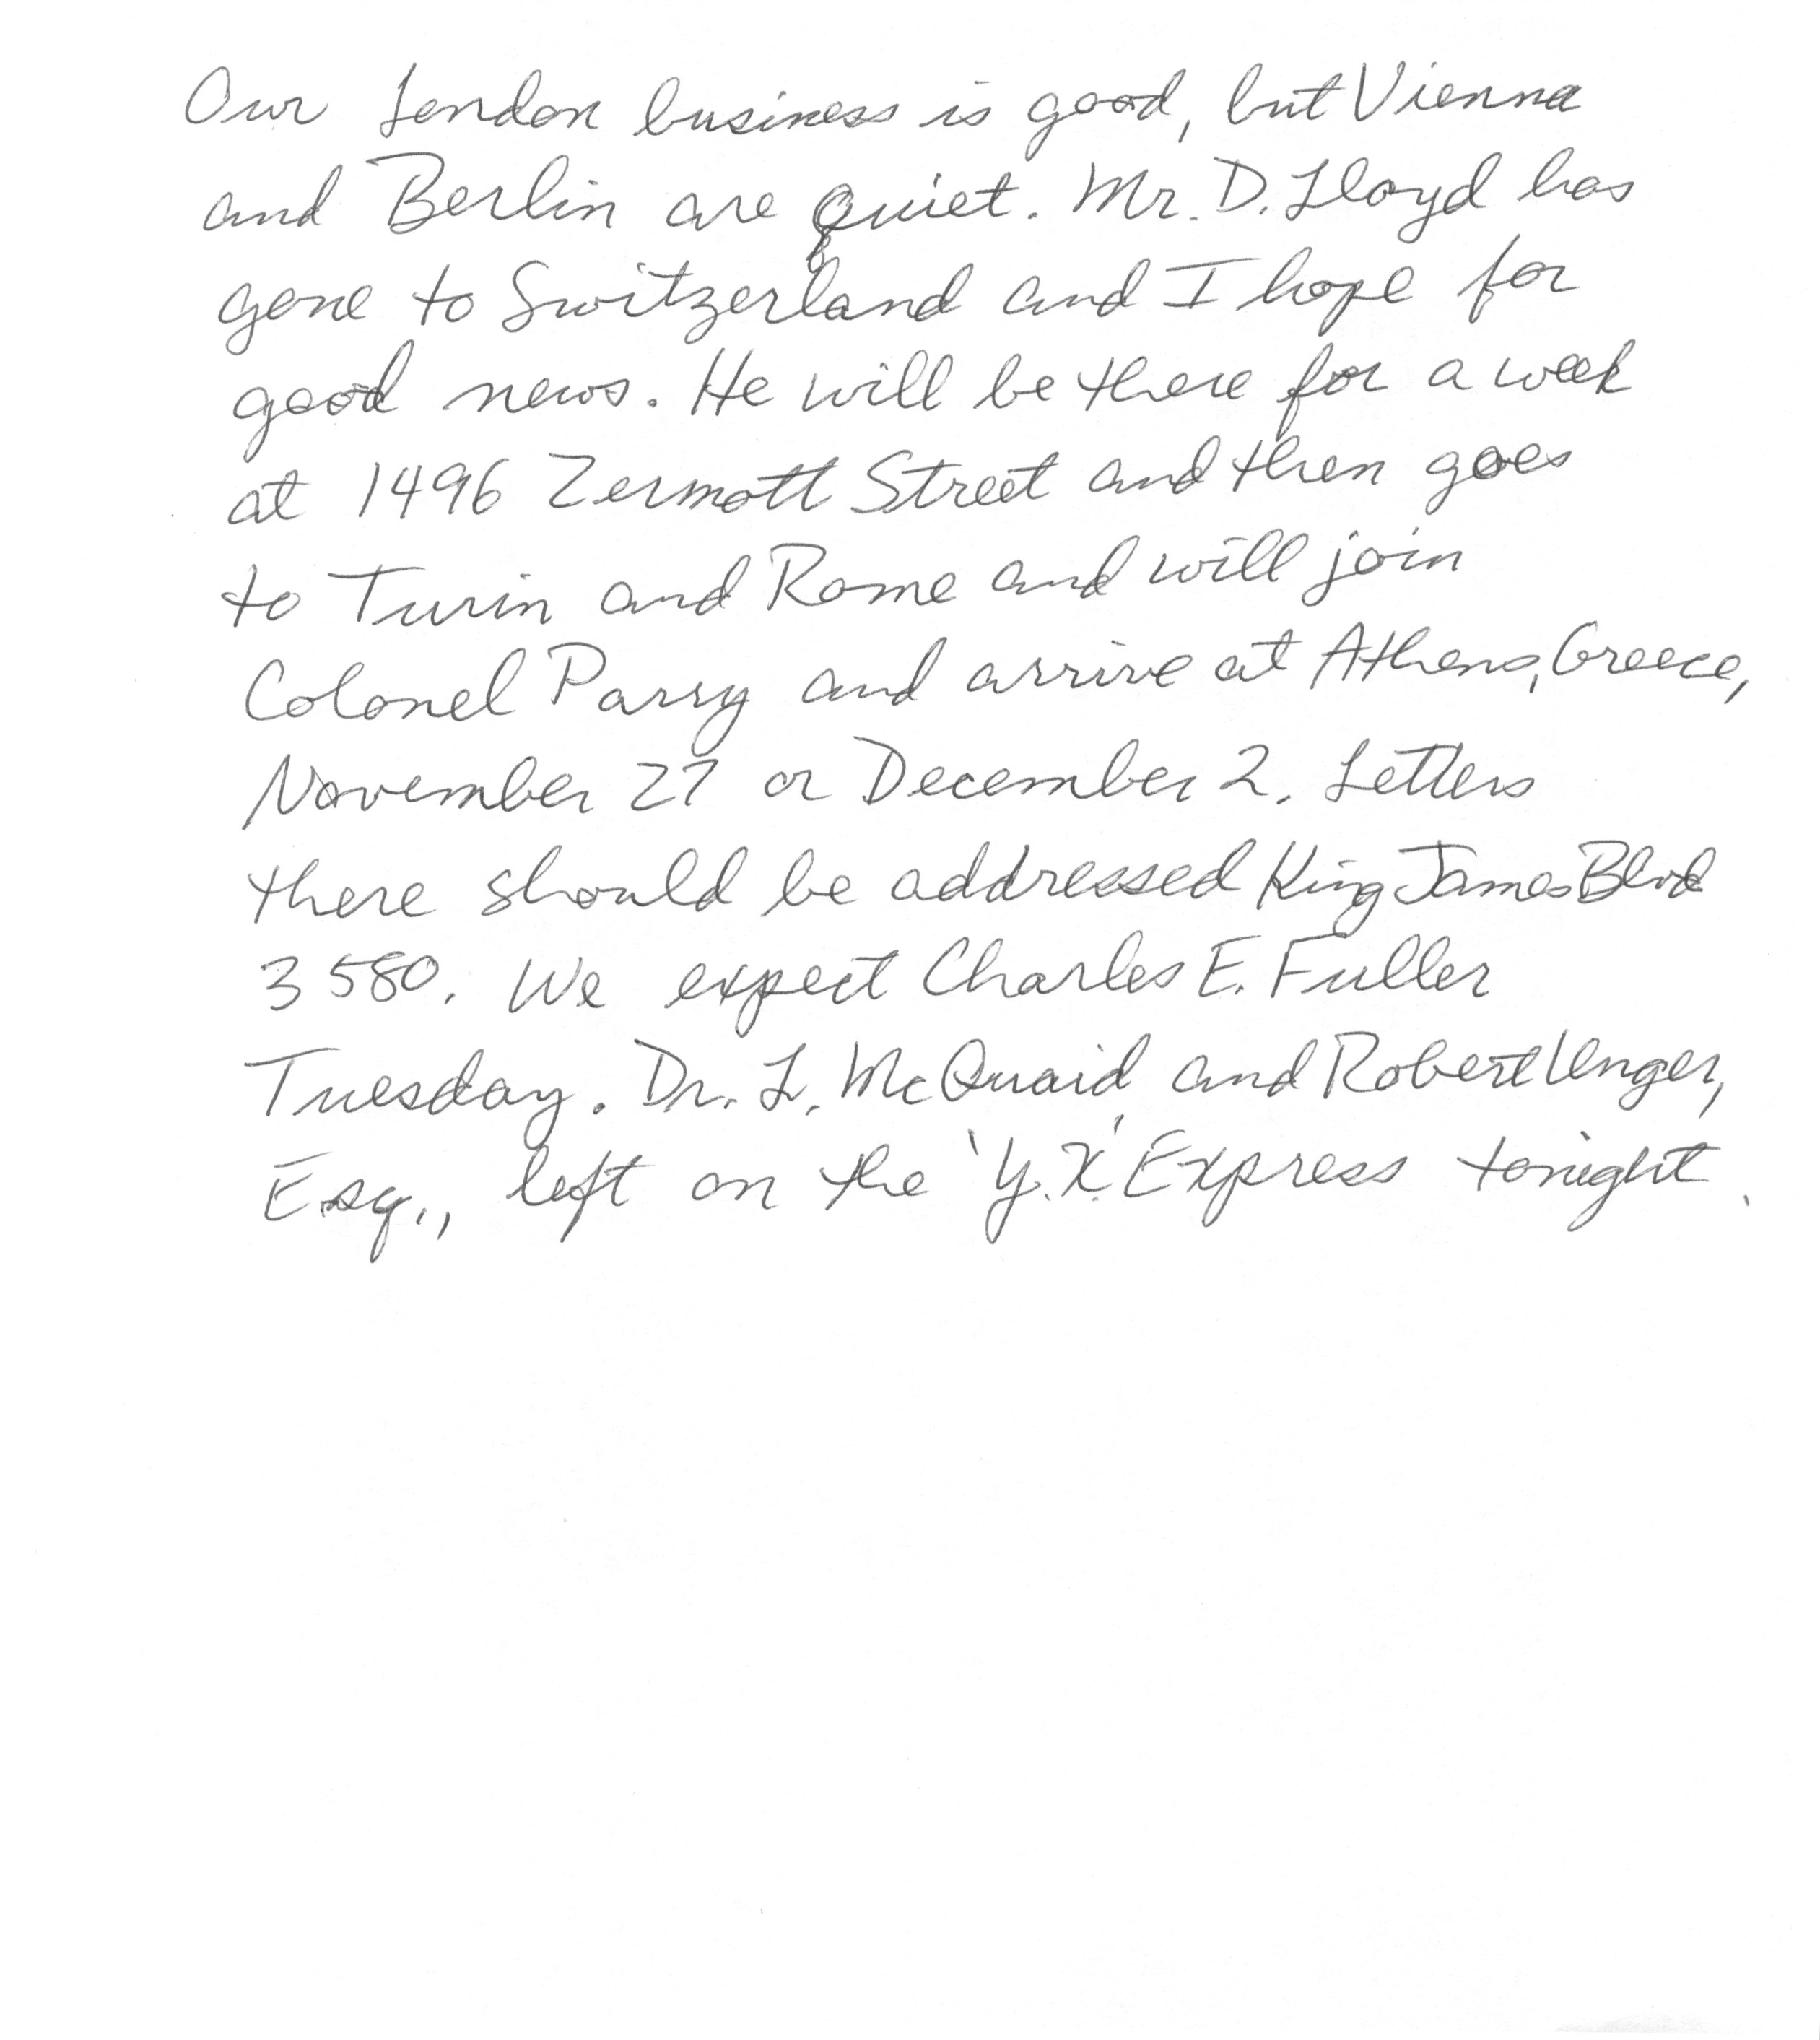 Our London business is good, but Vienna
and Berlin are quiet. Mr. D. Lloyd has
gone to Switzerland and I hope for
good news. He will be there for a week
at 1496 Zermott Street and then goes
to Turin and Rome and will join
Colonel Parry and arrive at Athens, Greece,
November 27 or December 2. Letters
there should be addressed King James Blvd
3580. We expect Charles E. Fuller
Tuesday. Dr. L. McQuaid and Robert Unger,
Esq., left on the 'Y.X.' Express tonight.